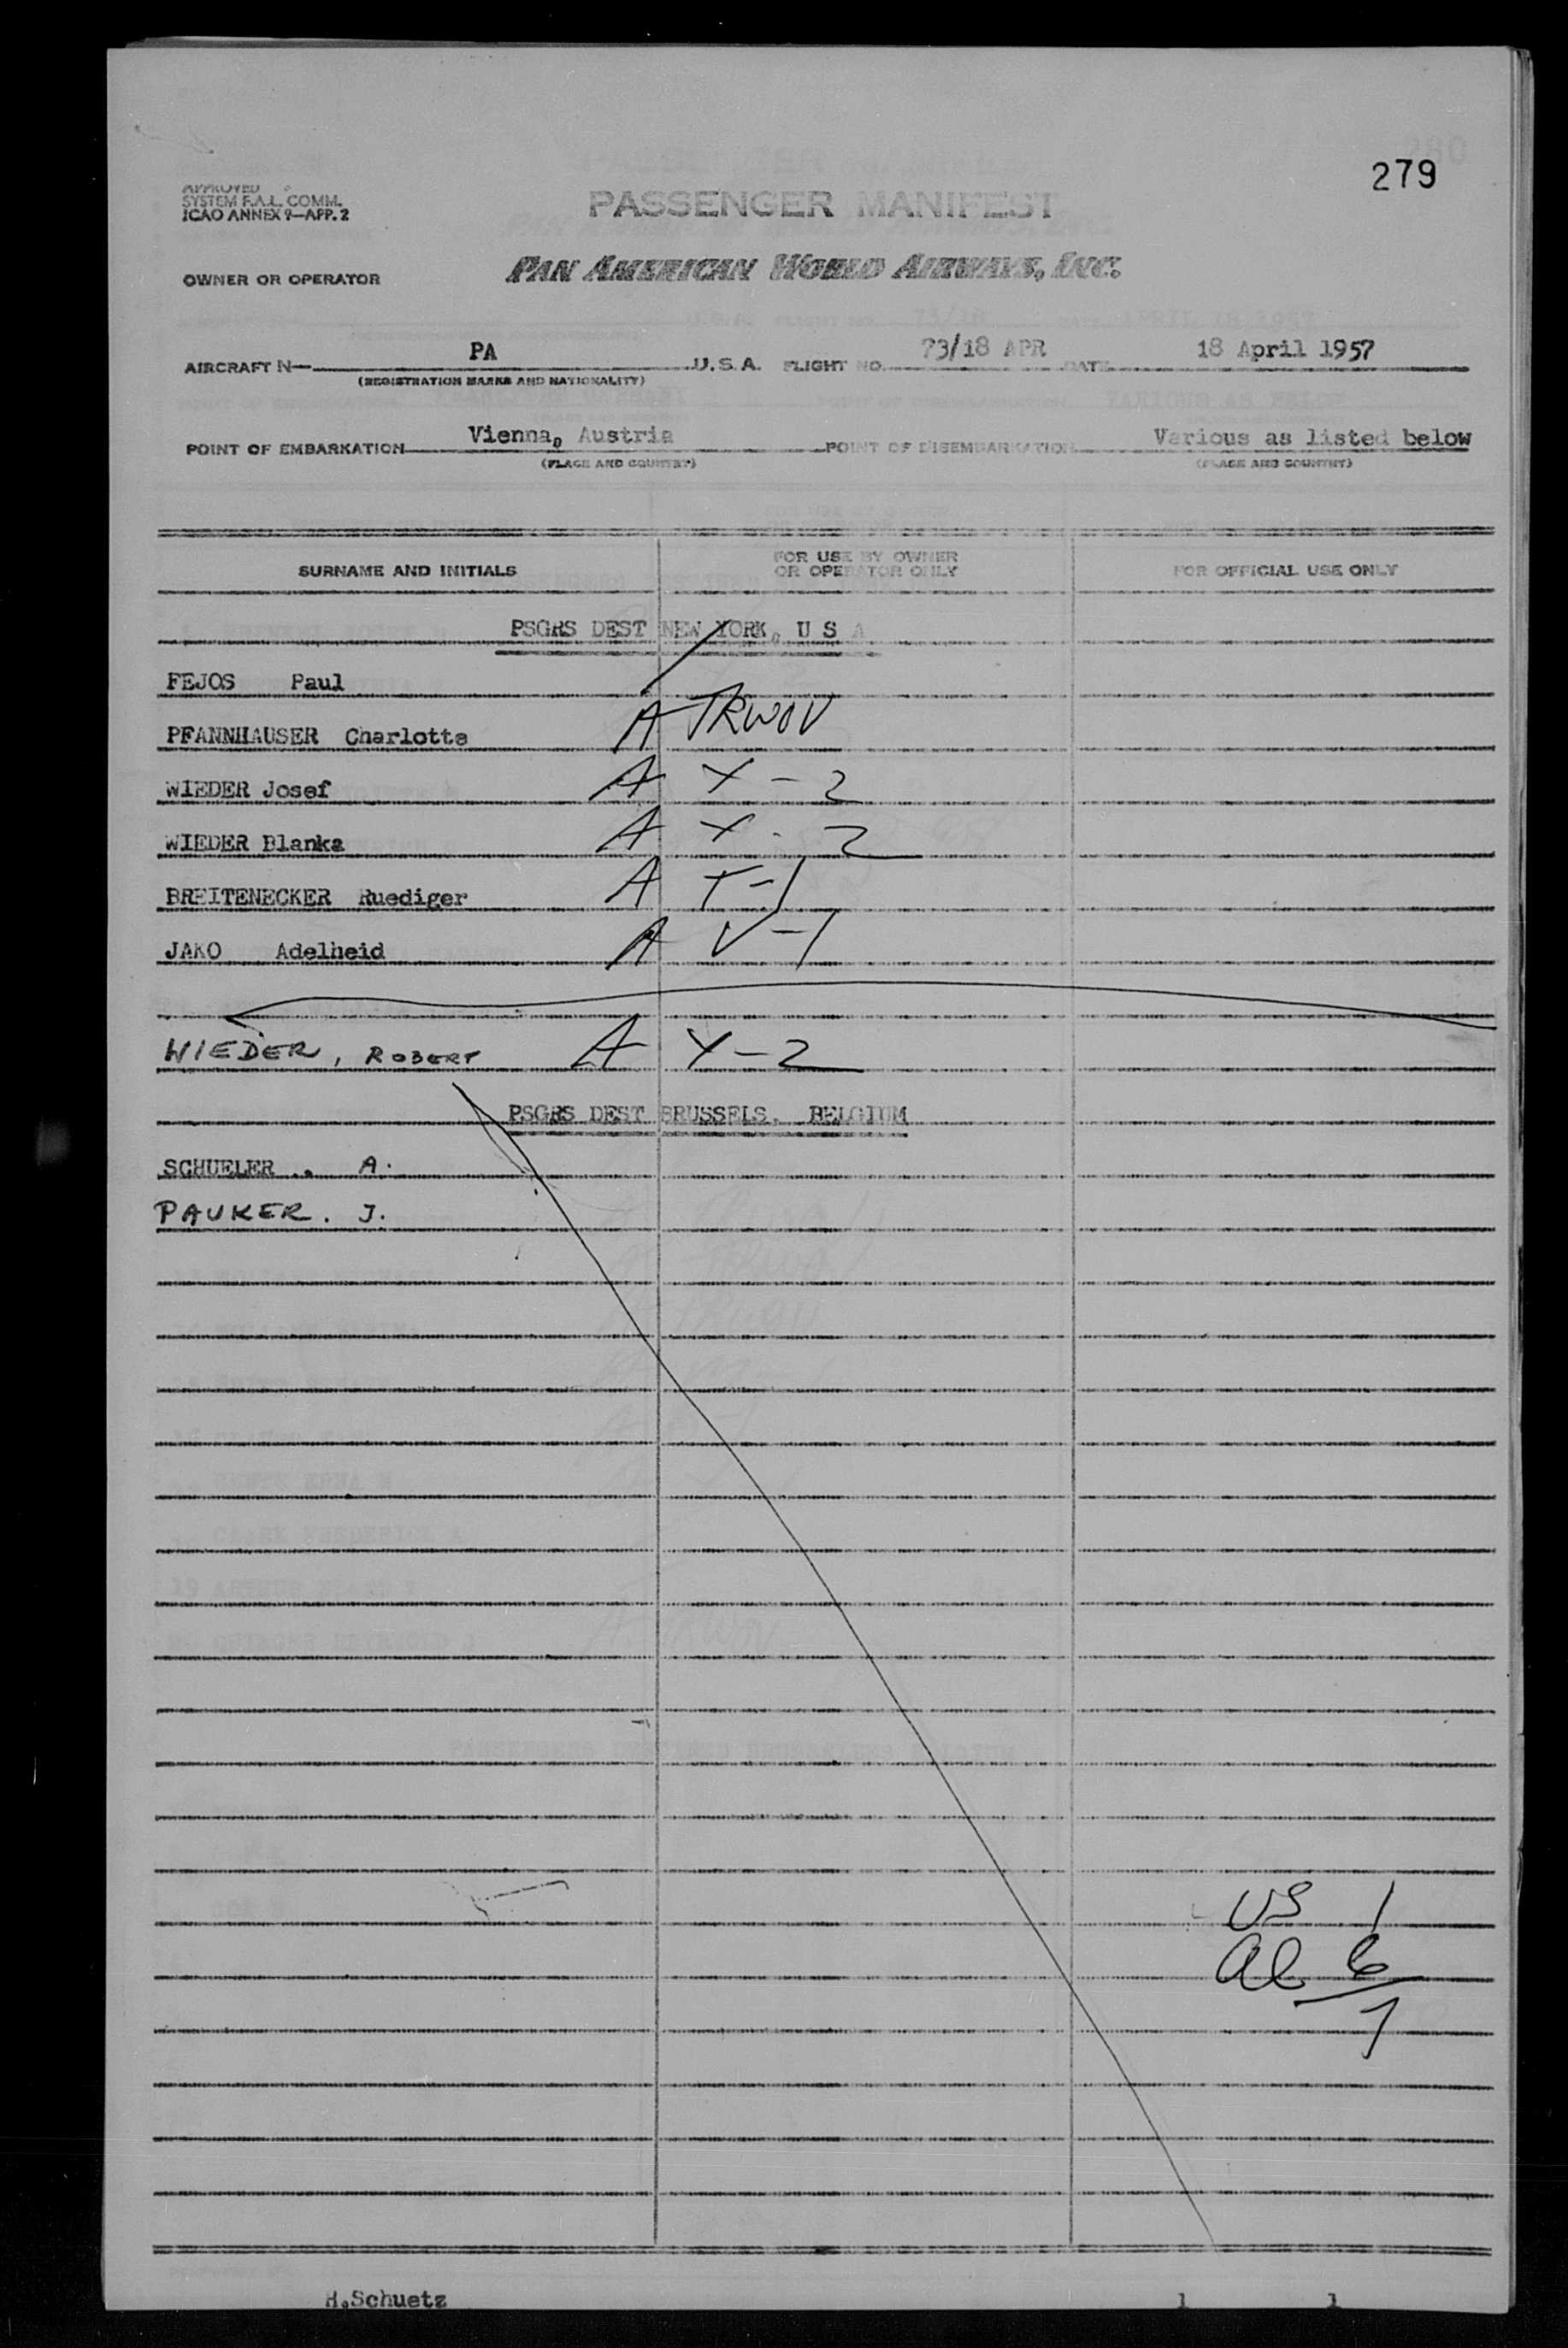 279
APPROVED
SYSTEM F.A.L. COMM.
ICAO ANNEX 9—APP. 2
PASSENGER MANIFEST
OWNER OR OPERATOR
PAN AMERICAN WORLD AIRWAYS, INC.
AIRCRAFT N— PA U.S.A. FLIGHT NO. 73/18 APR DATE 18 April 1957
(REGISTRATION MARKS AND NATIONALITY)
POINT OF EMBARKATION Vienna, Austria POINT OF DISEMBARKATION Various as listed below
(PLACE AND COUNTRY) (PLACE AND COUNTRY)
SURNAME AND INITIALS FOR USE BY OWNER OR OPERATOR ONLY FOR OFFICIAL USE ONLY
PSGRS DEST NEW YORK, U S A
FEJOS Paul
PFANNHAUSER Charlotte A TRWOV
WIEDER Josef A Y - 2
WIEDER Blanka A Y - 2
BREITENECKER Ruediger A T-1
JAKO Adelheid A V-1
WIEDER, ROBERT A Y-2
PSGRS DEST BRUSSELS, BELGIUM
SCHUELER .. A.
PAUKER. J.
US 1
al 6
7
H.Schuetz 1 1